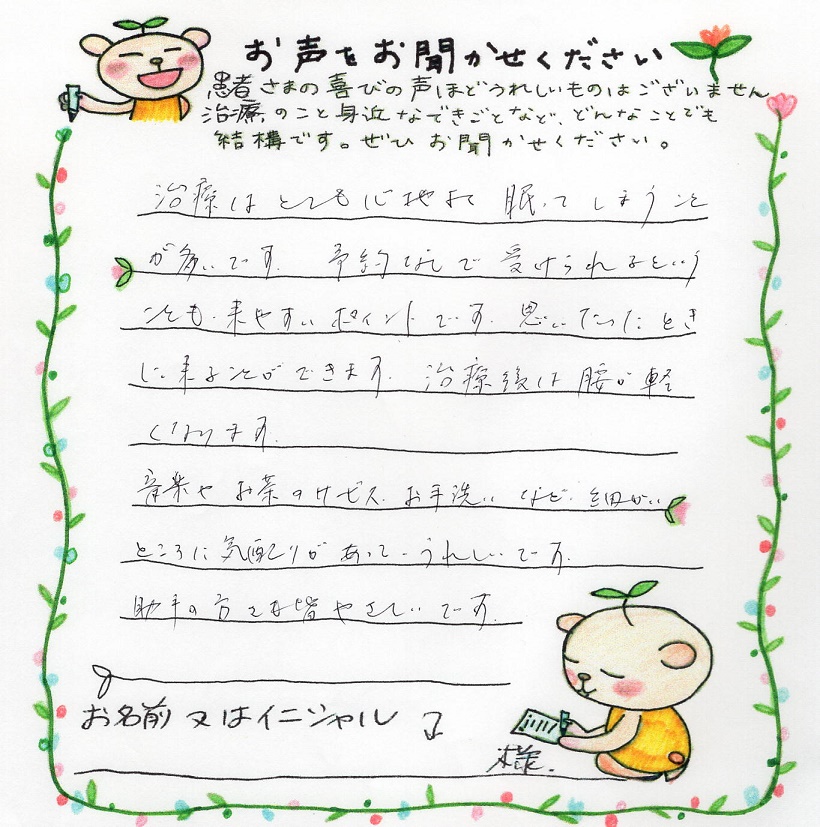 お声をお聞かせください
患者さまの喜びの声ほどうれしいものはございません
治療のこと身近なできごとなど、どんなことでも
結構です。ぜひお聞かせください。
治療はとても心地よく眠ってしまうこと
が多いです。予約なしで受けられるという
ことも、来やすいポイントです。思いたったとき
に来ることができます。治療後は腰が軽
くなります。
音楽やお茶のサービス、お手洗いなど、細かい
ところに気配りがあって、うれしいです。
助手の方も皆やさしいです。
お名前又はイニシャル
様.